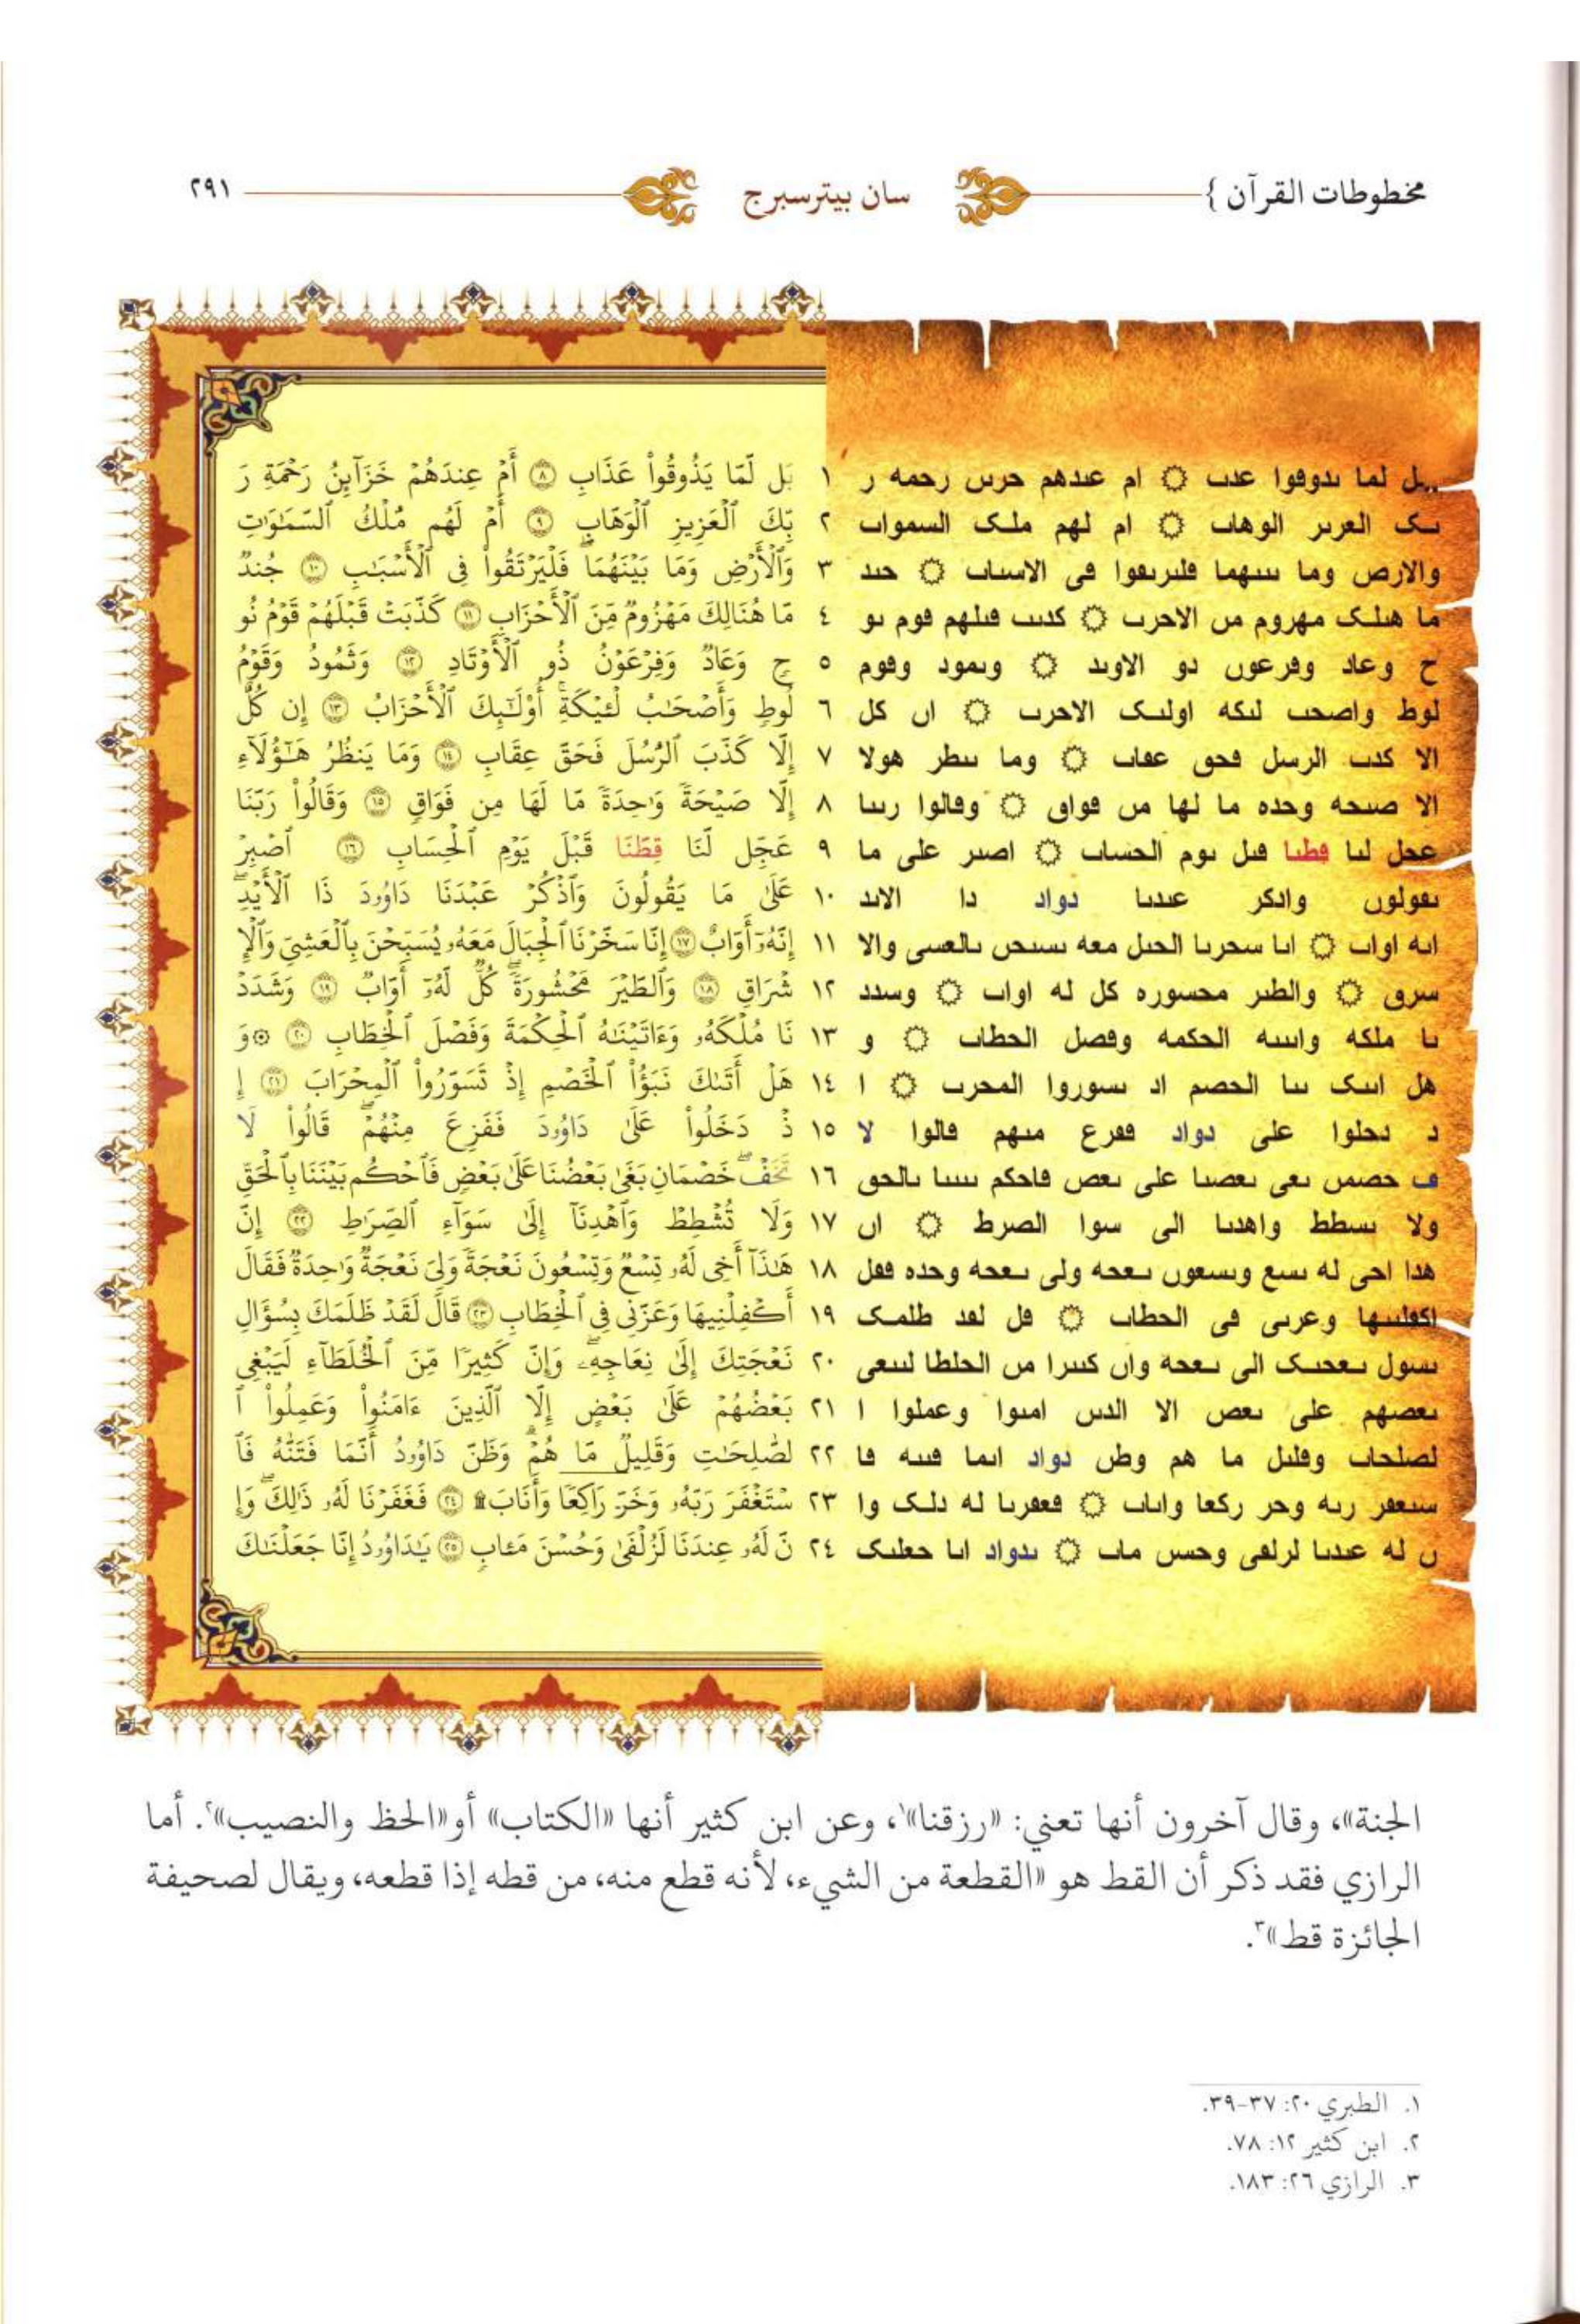 مخطوطات القرآن } سان بيترسبرج ٢٩١
بل لما ىدوقوا عدٮ ۞ ام عىدهم حرىں رحمه ر ١ بَل لَّمَّا يَذُوقُوا۟ عَذَابِ ٨ أَمْ عِندَهُمْ خَزَآئِنُ رَحْمَةِ رَ
ىک العرىر الوهاٮ ۞ ام لهم ملک السمواٮ ٢ بِّكَ ٱلْعَزِيزِ ٱلْوَهَّابِ ٩ أَمْ لَهُم مُّلْكُ ٱلسَّمَـٰوَٰتِ
والارص وما ٮىىهما فلىرىٯوا ڡى الاسىاٮ ۞ حىد ٣ وَٱلْأَرْضِ وَمَا بَيْنَهُمَا ۖ فَلْيَرْتَقُوا۟ فِى ٱلْأَسْبَـٰبِ ١٠ جُندٌ
ما هىلک مهروم مں الاحرٮ ۞ كدىٮ ڡىلهم ڡوم ىو ٤ مَّا هُنَالِكَ مَهْزُومٌ مِّنَ ٱلْأَحْزَابِ ١١ كَذَّبَتْ قَبْلَهُمْ قَوْمُ نُو
ح وعاد وڡرعوں دو الاوىد ۞ وىمود وڡوم ٥ حٍ وَعَادٌ وَفِرْعَوْنُ ذُو ٱلْأَوْتَادِ ١٢ وَثَمُودُ وَقَوْمُ
لوط واصحٮ لىكه اولىک الاحرٮ ۞ اں كل ٦ لُوطٍ وَأَصْحَـٰبُ لْـَٔيْكَةِ ۚ أُو۟لَـٰٓئِكَ ٱلْأَحْزَابُ ١٣ إِن كُلٌّ
الا كدٮ الرسل ڡحق عڡاٮ ۞ وما ىىطر هولا ٧ إِلَّا كَذَّبَ ٱلرُّسُلَ فَحَقَّ عِقَابِ ١٤ وَمَا يَنظُرُ هَـٰٓؤُلَآءِ
الا صىحه وحده ما لها مں ڡواٯ ۞ وڡالوا رىىا ٨ إِلَّا صَيْحَةً وَٰحِدَةً مَّا لَهَا مِن فَوَاقٍ ١٥ وَقَالُوا۟ رَبَّنَا
عحل لىا ڡطىا ڡىل ىوم الحساٮ ۞ اصىر على ما ٩ عَجِّل لَّنَا قِطَّنَا قَبْلَ يَوْمِ ٱلْحِسَابِ ١٦ ٱصْبِرْ
ىڡولوں وادكر عىدىا دواد دا الاىد ١٠ عَلَىٰ مَا يَقُولُونَ وَٱذْكُرْ عَبْدَنَا دَاوُۥدَ ذَا ٱلْأَيْدِ ۖ
اىه اواٮ ۞ اىا سحرىا الحىل معه ىسىحں ىالعسى والا ١١ إِنَّهُۥٓ أَوَّابٌ ١٧ إِنَّا سَخَّرْنَا ٱلْجِبَالَ مَعَهُۥ يُسَبِّحْنَ بِٱلْعَشِىِّ وَٱلْإِ
سرٯ ۞ والطىر محسوره كل له اواٮ ۞ وسدد ١٢ شْرَاقِ ١٨ وَٱلطَّيْرَ مَحْشُورَةً ۖ كُلٌّ لَّهُۥٓ أَوَّابٌ ١٩ وَشَدَدْ
ىا ملكه واىىىه الحكمه وڡصل الحطاٮ ۞ و ١٣ نَا مُلْكَهُۥ وَءَاتَيْنَـٰهُ ٱلْحِكْمَةَ وَفَصْلَ ٱلْخِطَابِ ٢٠ ۞ وَ
هل اىىک ىىا الحصم اد ىسوروا المحرٮ ۞ ا ١٤ هَلْ أَتَىٰكَ نَبَؤُا۟ ٱلْخَصْمِ إِذْ تَسَوَّرُوا۟ ٱلْمِحْرَابَ ٢١ إِ
د دحلوا على دواد ڡڡرع مىهم ڡالوا لا ١٥ ذْ دَخَلُوا۟ عَلَىٰ دَاوُۥدَ فَفَزِعَ مِنْهُمْ ۖ قَالُوا۟ لَا
حصمں ىعى ىعصىا على ىعص ڡاحكم ىىىىا ىالحق ١٦ تَخَفْ ۖ خَصْمَانِ بَغَىٰ بَعْضُنَا عَلَىٰ بَعْضٍ فَٱحْكُم بَيْنَنَا بِٱلْحَقِّ
ولا ىسطط واهدىا الى سوا الصرط ۞ اں ١٧ وَلَا تُشْطِطْ وَٱهْدِنَآ إِلَىٰ سَوَآءِ ٱلصِّرَٰطِ ٢٢ إِنَّ
هدا احى له ىسع وىسعوں ىعحه ولى ىعحه وحده ڡڡل ١٨ هَـٰذَآ أَخِى لَهُۥ تِسْعٌ وَتِسْعُونَ نَعْجَةً وَلِىَ نَعْجَةٌ وَٰحِدَةٌ فَقَالَ
اكڡلىىها وعرىى ڡى الحطاٮ ۞ ڡل لڡد طلمک ١٩ أَكْفِلْنِيهَا وَعَزَّنِى فِى ٱلْخِطَابِ ٢٣ قَالَ لَقَدْ ظَلَمَكَ بِسُؤَالِ
ىسول ىعحىک الى ىعحة واں كىىرا مں الحلطا لىىعى ٢٠ نَعْجَتِكَ إِلَىٰ نِعَاجِهِۦ ۖ وَإِنَّ كَثِيرًا مِّنَ ٱلْخُلَطَآءِ لَيَبْغِى
ىعصهم على ىعص الا الدىں امىوا وعملوا ا ٢١ بَعْضُهُمْ عَلَىٰ بَعْضٍ إِلَّا ٱلَّذِينَ ءَامَنُوا۟ وَعَمِلُوا۟ ٱ
لصلحاٮ وڡلىل ما هم وطں دواد اىما ڡىىه ڡا ٢٢ لصَّـٰلِحَـٰتِ وَقَلِيلٌ مَّا هُمْ ۗ وَظَنَّ دَاوُۥدُ أَنَّمَا فَتَنَّـٰهُ فَٱ
سىعڡر رىه وحر ركعا واىاٮ ۞ ڡعڡرىا له دلک وا ٢٣ سْتَغْفَرَ رَبَّهُۥ وَخَرَّ رَاكِعًا وَأَنَابَ ۩ ٢٤ فَغَفَرْنَا لَهُۥ ذَٰلِكَ ۖ وَإِ
ں له عىدىا لرلڡى وحسں ماٮ ۞ ىدواد اىا حعلىک ٢٤ نَّ لَهُۥ عِندَنَا لَزُلْفَىٰ وَحُسْنَ مَـَٔابٍ ٢٥ يَـٰدَاوُۥدُ إِنَّا جَعَلْنَـٰكَ
الجنة»، وقال آخرون أنها تعني: «رزقنا»١، وعن ابن كثير أنها «الكتاب» أو«الحظ والنصيب»٢. أما
الرازي فقد ذكر أن القط هو «القطعة من الشيء، لأنه قطع منه، من قطه إذا قطعه، ويقال لصحيفة
الجائزة قط»٣.
١. الطبري ٢٠: ٣٧-٣٩.
٢. ابن كثير ١٢: ٧٨.
٣. الرازي ٢٦: ١٨٣.